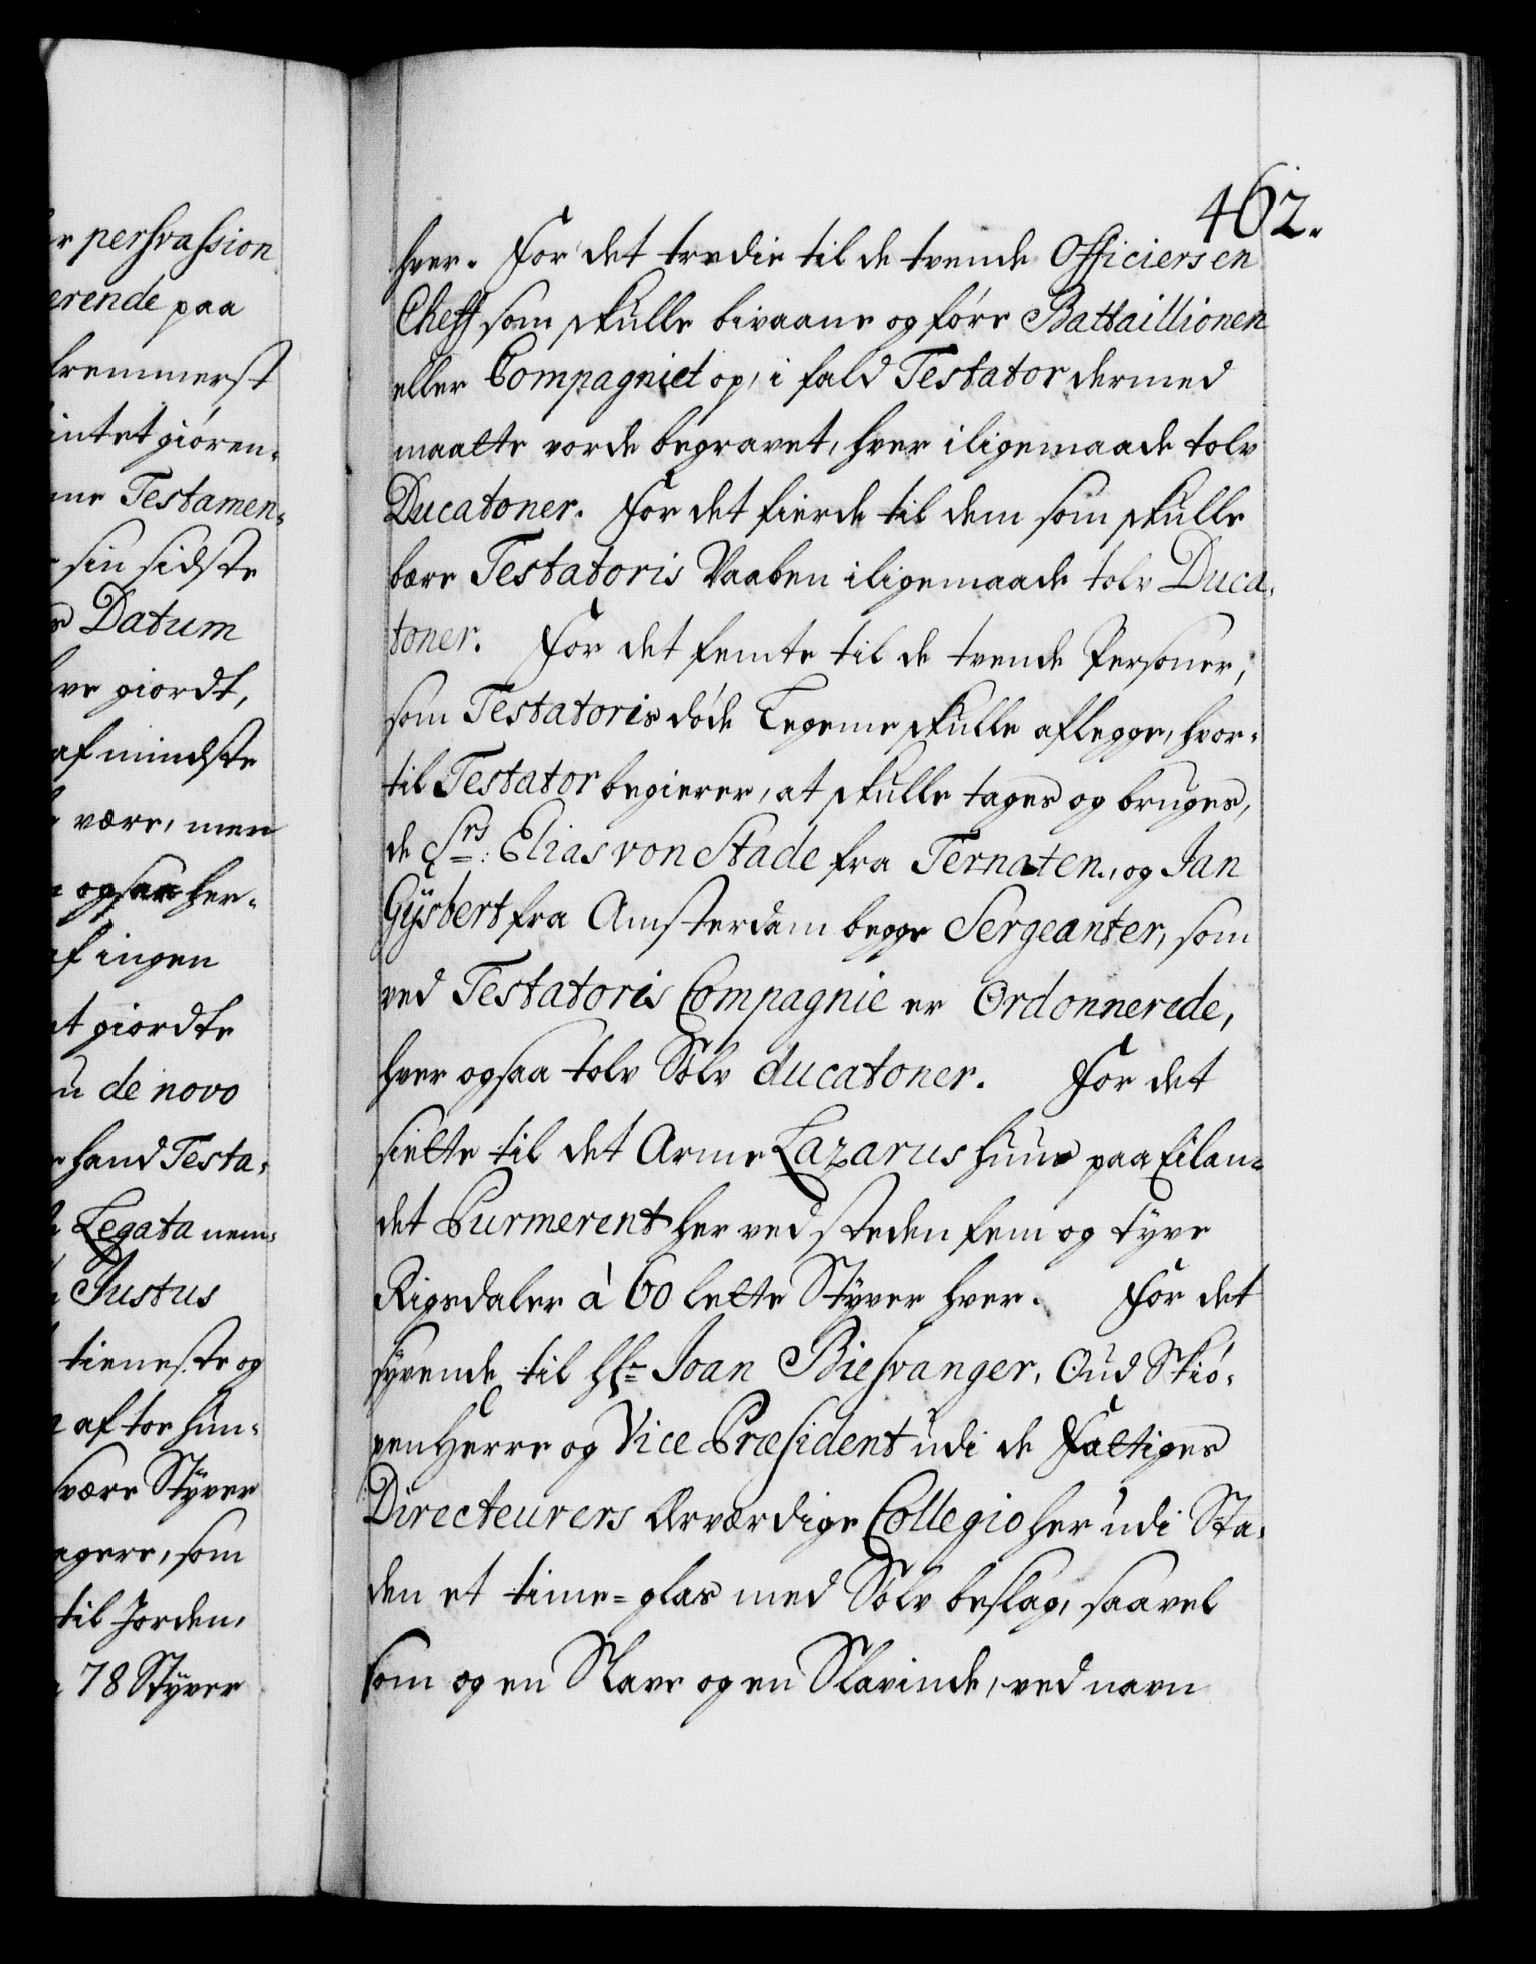 r persvassion
erende paa
fremmerst
intet giören-
me Testamen-
sin sidste
Datum
ve giordt,
af mindste
være, men
ogsaa her-
af ingen
t giordte
u de novo
hand Testa-
Legata nem-
Justus
tieneste og
af toe hun-
svære Styver
agere, som
til Jorden,
78 Styver
462.
hver. For det tredie til de tvende Officiers en
Cheff som skulle bivaane og före Battaillionen
eller Compagniet op, i fald Testator dermed
maatte vorde begravet, hver iligemaade tolv
Ducatoner. For det fierde til dem som skulle
bære Testatoris Vaaben iligemaade tolv Duca-
toner. For det femte til de tvende Personer,
som Testatoris döde Legeme skulle aflegge, hvor-
til Testator begierer, at skulle tages og bruges,
de Srs: Elias von Stade fra Ternaten, og Jan
Gÿsbert fra Amsterdam begge Sergeanter, som
ved Testatoris Compagnie er Ordonnerede,
hver ogsaa tolv Sölv ducatoner. For det
siette til det Arme Lazarus huus paa Eilan-
det Purmerent her ved steden fem og tyve
Rigsdaler à 60 lette Styver hver. For det
syvende til Hr Joan Biesvanger, Oud Skiö-
pen Herre og Vice Præsident udi de Fattiges
Directeurers Ærværdige Collegio her udi Sta-
den et time-glas med Sölv beslag, saavel
som og en Slave og en Slavinde, ved navn